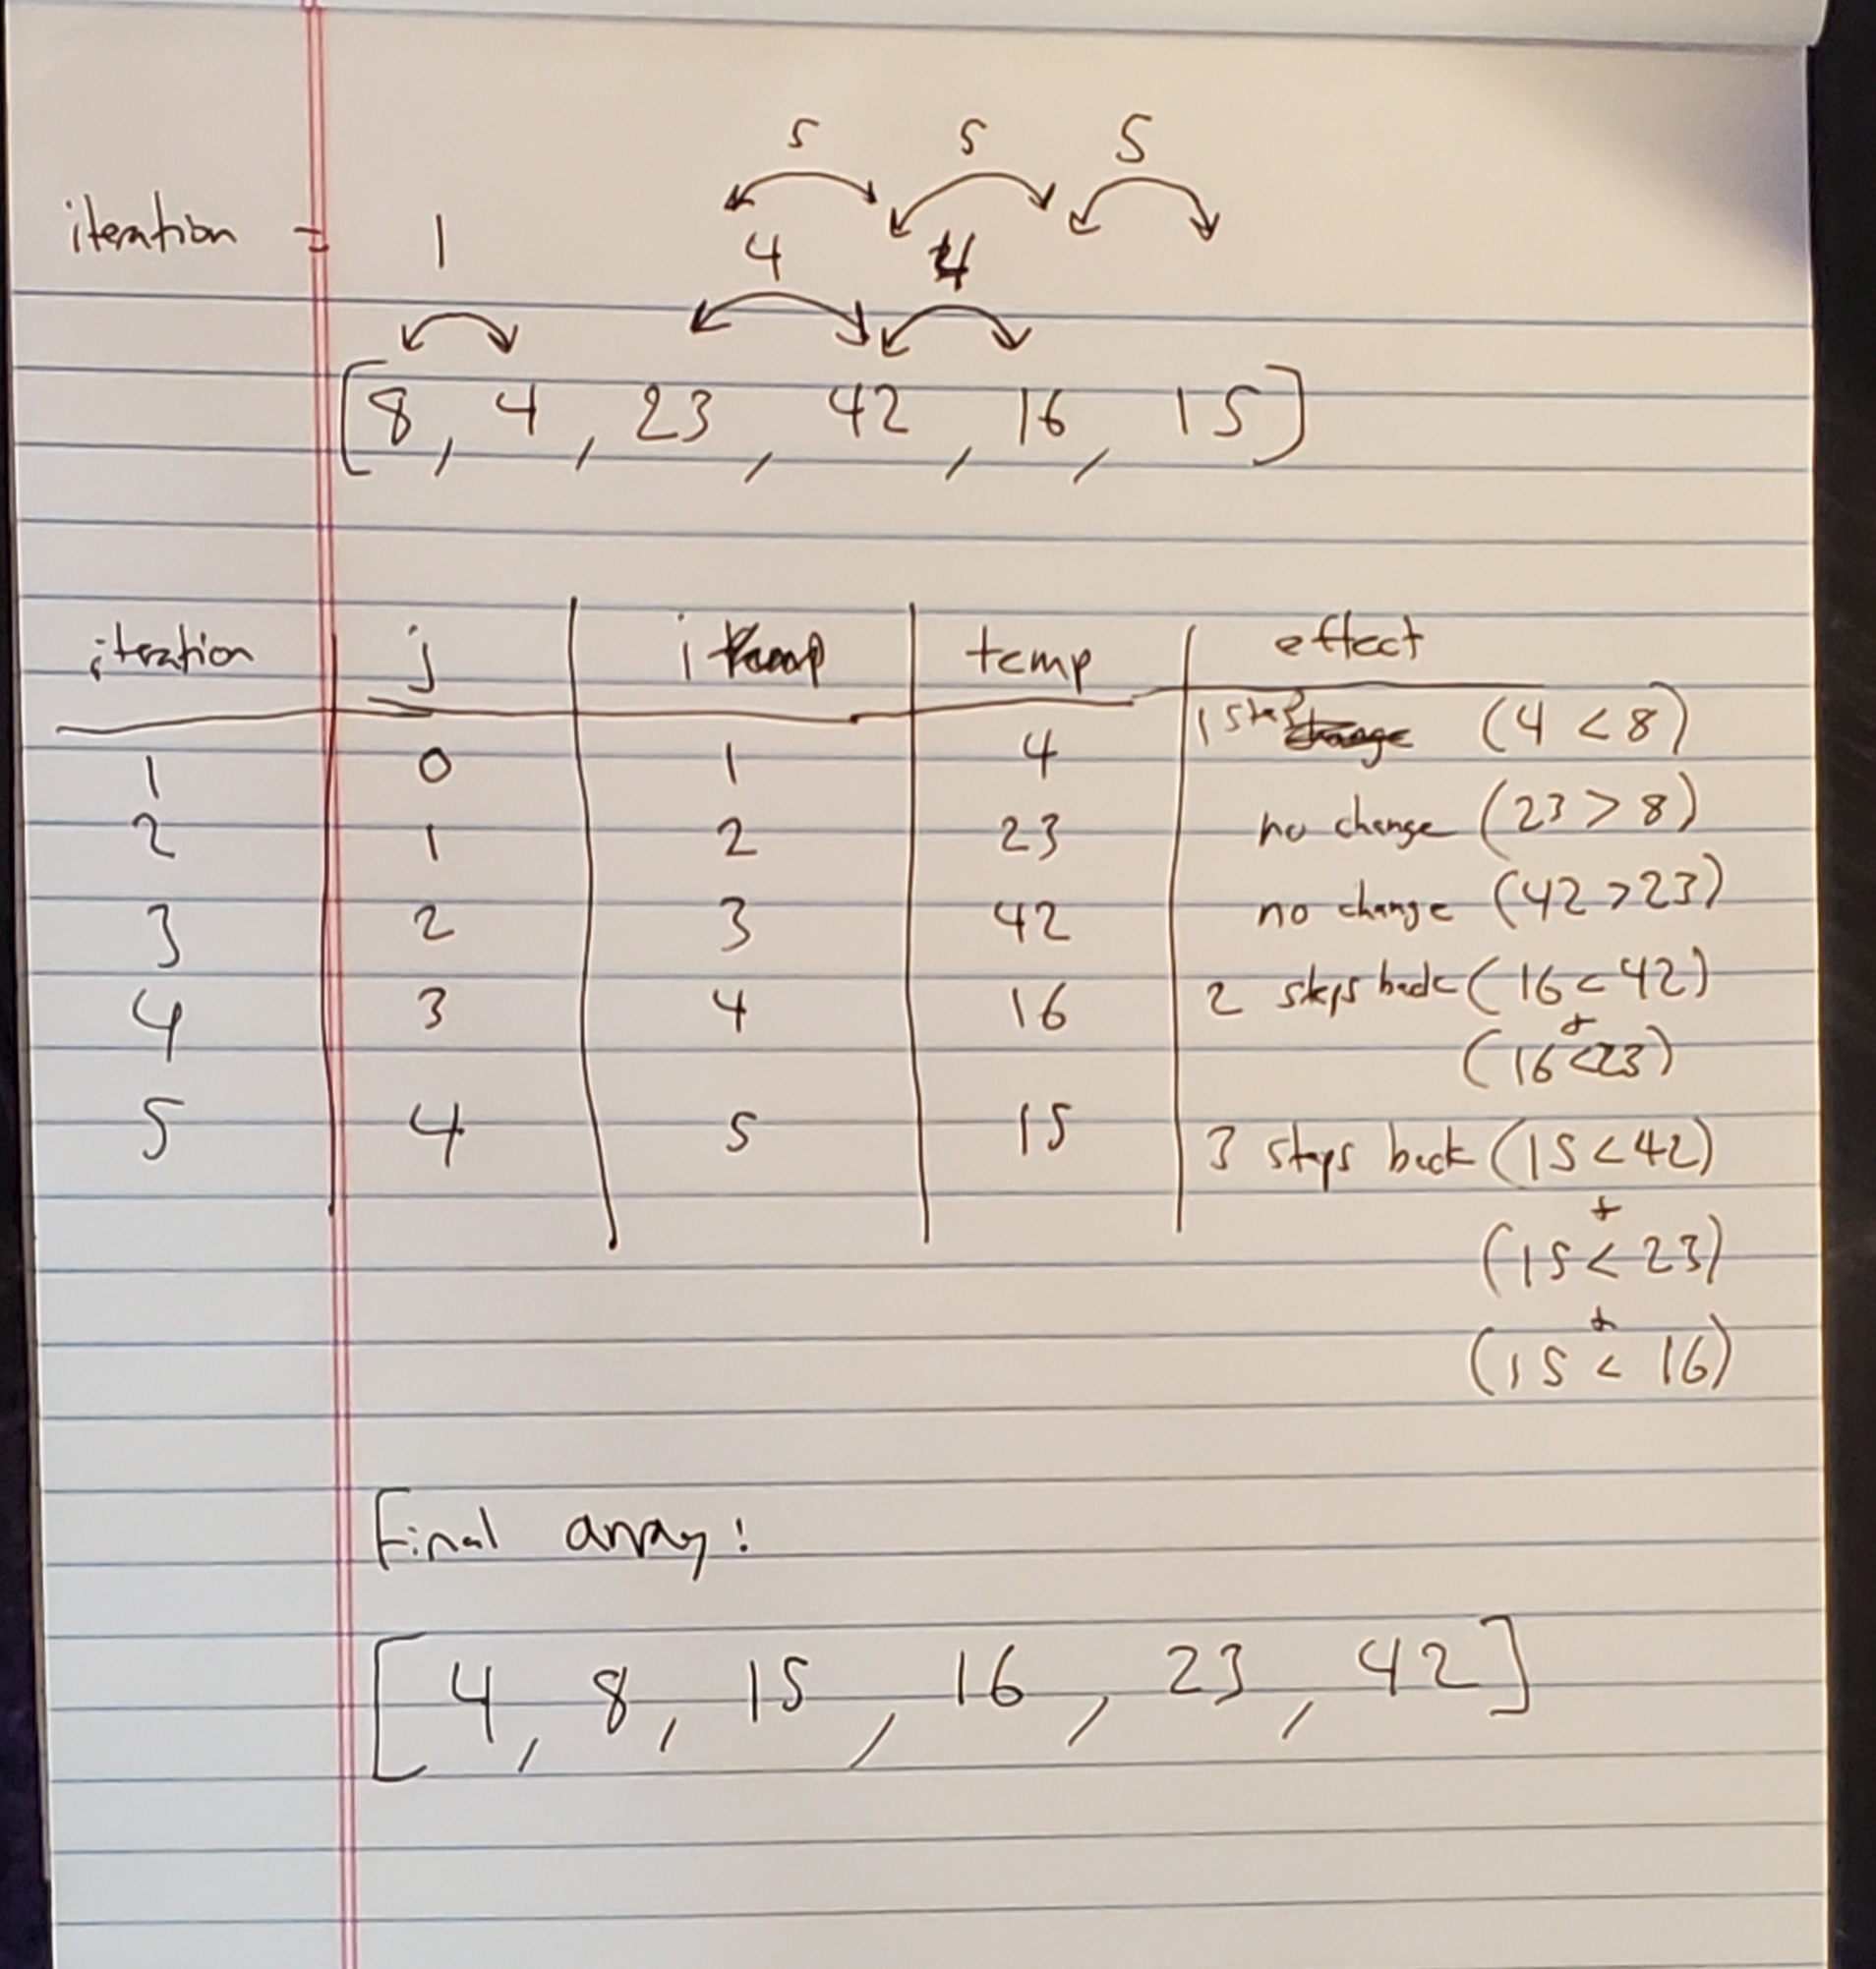 5 5 5
iteration = 1 4 4
[8, 4, 23, 42, 16, 15]
iteration j i temp effect
1 0 1 4 1 step (4 < 8)
2 1 2 23 no change (23 > 8)
3 2 3 42 no change (42 > 23)
4 3 4 16 2 steps back (16 < 42)
+
(16 < 23)
5 4 5 15 3 steps back (15 < 42)
+
(15 < 23)
+
(15 < 16)
Final array:
[4, 8, 15, 16, 23, 42]